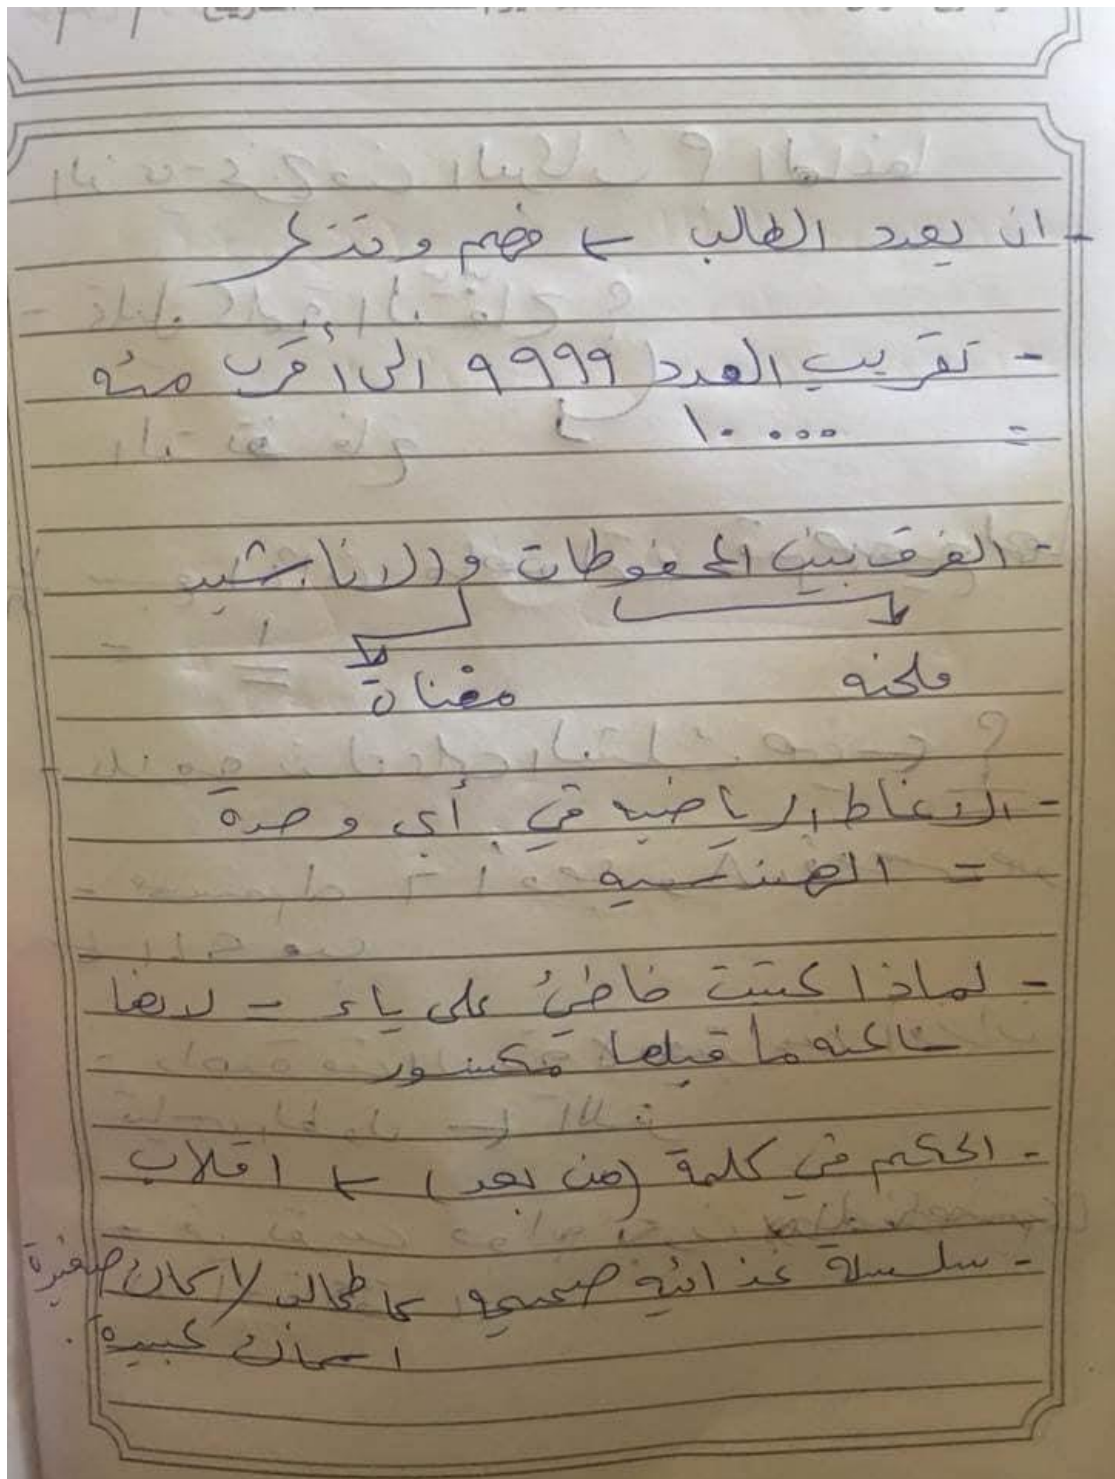 - ان يعدد الطالب ← فهم وتذكر
- تقريب العدد ٩٩٩٩ الى أقرب مئه
= ١٠٠٠٠
- الفرق بين المحفوظات والاناشيد
ملحنه مغناة
- الانماط الرياضيه في أي وحدة
= الهندسيه
- لماذا كتبت خاطئ على ياء = لانها
ساكنه ما قبلها مكسور
- الحكم في كلمة (من بعد) ← اقلاب
- سلسلة غذائيه صحيحه طحالب / اسماك صغيرة
اسماك كبيرة.